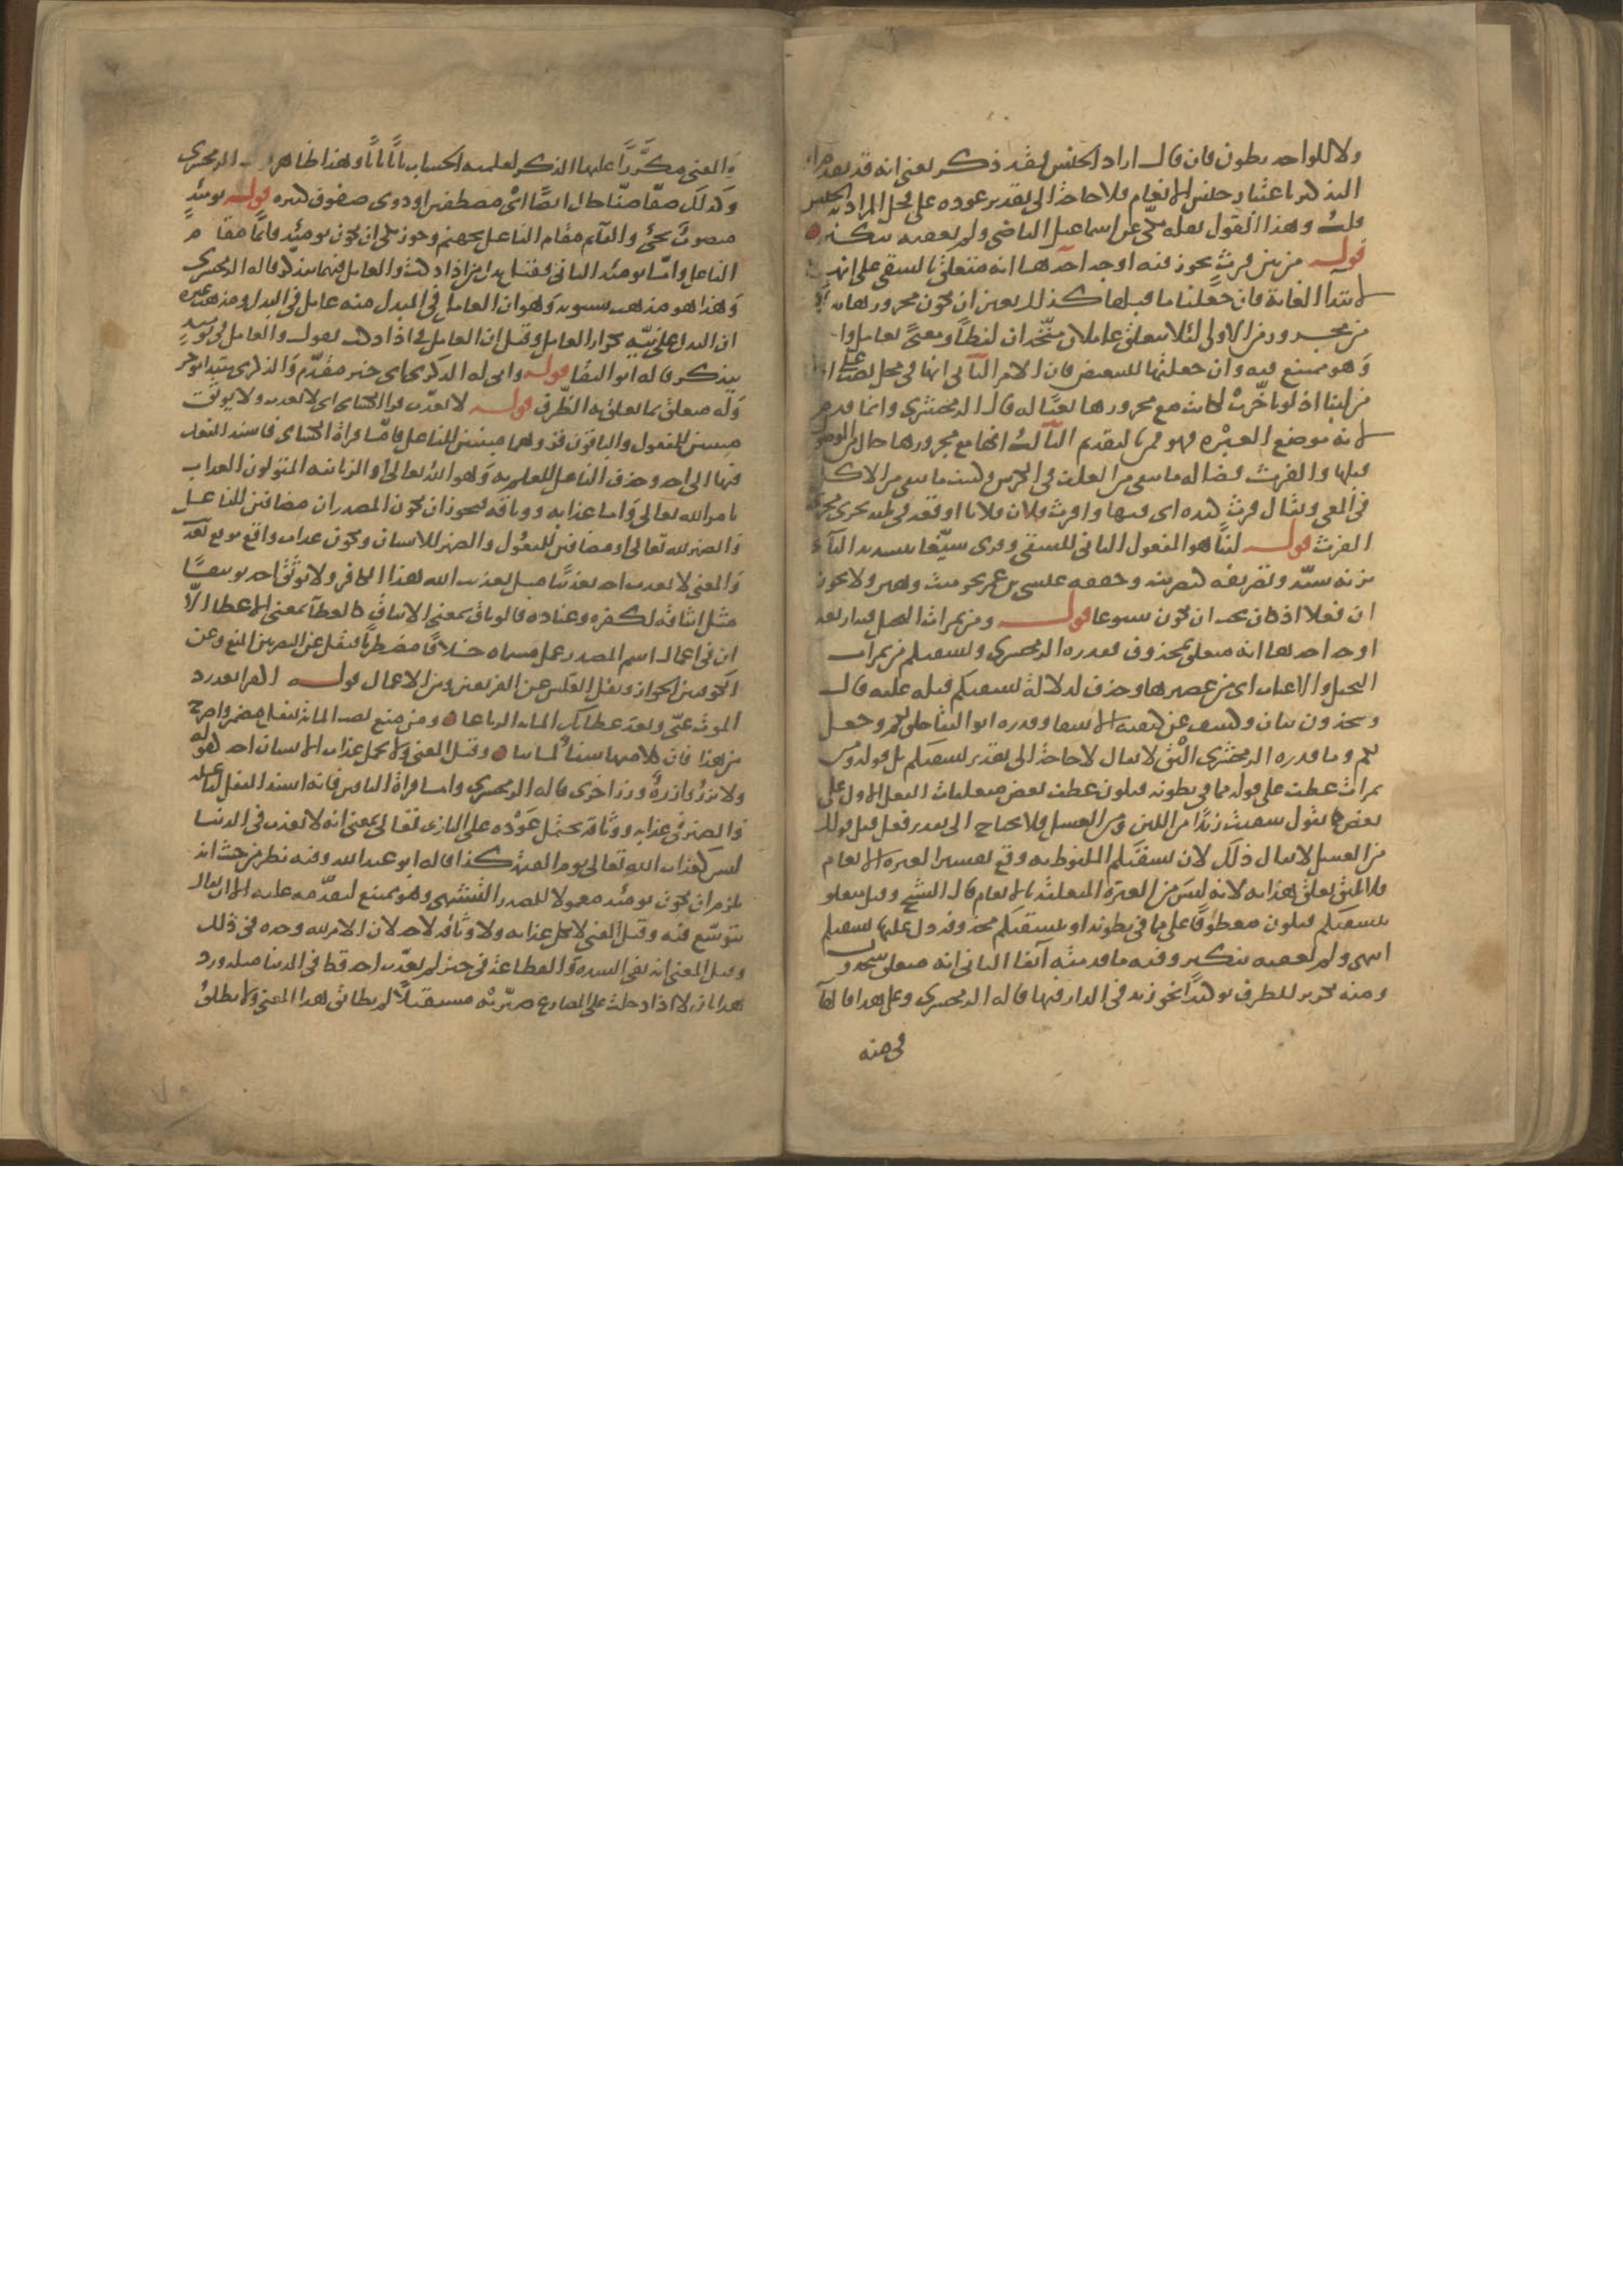 ولا للواحد بطون فان قال اراد الجنس فقد ذكر يعنى انه قد تقدم ان
التذكير باعتبار جنس الانعام فلا حاجة الى تقدير عوده على محل المراد به الجنس
قلت وهذا القول نقله مكى عن اسماعيل القاضى ولم يعقبه بنكير
قوله من بين فرث يجوز فيه اوجه احدها انه متعلق بالسقى على انها
لابتدا الغاية فان جعلنا ما قبلها كذلك تعين ان يكون مجرورها بدلا
من مجرور من الاولى لئلا يتعلق عاملان متحدان لفظا ومعنى بعامل واحد
وهو ممتنع فيه وان جعلتها للتبعيض فان الامر الثانى انها فى محل نصب على الحال
من لبنا اذ لو تاخرت لكانت مع مجرورها نعتا له قال الزمخشرى وانما قدم
لانه موضع العبرة فهو قمن بالتقديم الثالث انها مع مجرورها حال من الموصول
قبلها والفرث فضالة ما يبقى من العلف فى الكرش وكثيف ما يبقى من الاكل
فى المعى ويقال فرث كبده اى فتتها وافرث فلان فلانا اوقعه فى بلية يجرى مجرى
الفرث قوله لبنا هو المفعول الثانى للسقى وقرى سيغا بتشديد الياء
بزنة سيد وتصريفه كتصريفه وخففه عيسى بن عمر نحو ميت وهين ولا يجوز
ان يكون فعلا اذ كان يجب ان يكون سوغا قوله ومن ثمرات النخل فيه اربعة
اوجه احدها انه متعلق بمحذوف فقدره الزمخشرى ونسقيكم من ثمرات
النخيل والاعناب اى من عصيرها وحذف لدلالة نسقيكم قبله عليه قال
وتتخذون بيان وكشف عن كيفية الاسقا وقدره ابو البقا خلق لكم وجعل
لكم وما قدره الزمخشرى اليق لا يقال لا حاجة الى تقدير نسقيكم بل قوله ومن
ثمرات عطف على قوله مما فى بطونه فيكون عطف بعض متعلقات الفعل الاول على
بعض كما تقول سقيت زيدا من اللبن ومن العسل فلا يحتاج الى تقدير فعل قبل قولك
من العسل لا يقال ذلك لان نسقيكم الملفوظ به وقع تفسيرا لعبرة الانعام
فلا يليق تعلق هذا به لانه ليس من العبرة المتعلقة بالانعام قال الشيخ وقيل متعلق
بنسقيكم فيكون معطوفا على مما فى بطونه او بنسقيكم محذوفة دل عليها نسقيكم
انتهى ولم يعقبه بنكير وفيه ما قدمته آنفا الثانى انه متعلق بتتخذون
ومنه تكرير للظرف توكيدا نحو زيد فى الدار فيها قاله الزمخشرى وعلى هذا فالهآ
فى منه
والمعنى مكررا عليها الذكر لتعليمه الحساب بابا بابا وهذا ظاهر قول الزمخشرى
وكذلك صفا صفا حال ايضا اى مصطفين او ذوى صفوف كثيرة قوله يومئذ
منصوب بجئ والقائم مقام الفاعل بجهنم وجوز مكى ان يكون يومئذ قائما مقام
الفاعل واما يومئذ الثانى فقيل بدل من اذا دكت والعامل فيهما يتذكر قاله الزمخشرى
وهذا هو مذهب سيبويه وهو ان العامل فى المبدل منه عامل فى البدل ومذهب غيره
ان البدل على نية تكرار العامل وقيل ان العامل فى اذا دكت يقول والعامل فى يومئذ
يتذكر قاله ابو البقا قوله وانى له الذكرى انى خبر مقدم والذكرى مبتدا مؤخر
وله متعلق بما تعلق به الظرف قوله لا يعذب قرا الكسائى لا يعذب ولا يوثق
مبنيين للمفعول والباقون قروهما مبنيين للفاعل فاما قراة الكسائى فاسند الفعل
فيها الى احد وحذف الفاعل للعلم به وهو الله تعالى او الزبانية المتولون العذاب
بامر الله تعالى واما عذابه ووثاقه فيجوز ان يكون المصدران مضافين للفاعل
والضمير لله تعالى او مضافين للمفعول والضمير للانسان ويكون عذاب واقع موقع تعذيب
والمعنى لا يعذب احد تعذيبا مثل تعذيب الله هذا الكافر ولا يوثق احد توثيقا
مثل ايثاقه لكفره وعناده فالوثاق بمعنى الايثاق كالعطآ بمعنى الاعطا الا
ان فى اعمال اسم المصدر عمل مسماه خلافا مضطربا فنقل عن البصريين المنع وعن
الكوفيين الجواز ونقل العكس عن الفريقين ومن الاعمال قوله اكفرا بعد رد
الموت عنى وبعد عطائك المائة الرتاعا ومن منع نصب المائة بفعل مضمر واصرح
من هذا فان كلامها شفآ لما بيا وقيل المعنى ولا يحمل عذاب الانسان احد كقوله
ولا تزر وازرة وزر اخرى قاله الزمخشرى واما قراة الباقين فانه اسند الفعل لفاعله
والضمير فى عذابه ووثاقه يحتمل عوده على البارى تعالى بمعنى انه لا يعذب فى الدنيا
ليس كعذاب الله تعالى يوم القيمة كذا قاله ابو عبد الله وفيه نظر من حيث انه
يلزم ان يكون يومئذ معمولا للمصدر التشبيهى وهو ممتنع لتقدمه عليه الا ان يقال
يتوسع فيه وقيل المعنى لا يكل عذابه ولا وثاقه لاحد لان الامر لله وحده فى ذلك
وقيل المعنى انه فى الشدة والفظاعة فى حيز لم يعذب احد قط فى الدنيا مثله ورد
هذا بان لا اذا دخلت على المضارع صيرته مستقبلا لم يطابق هذا المعنى ولا يطلق